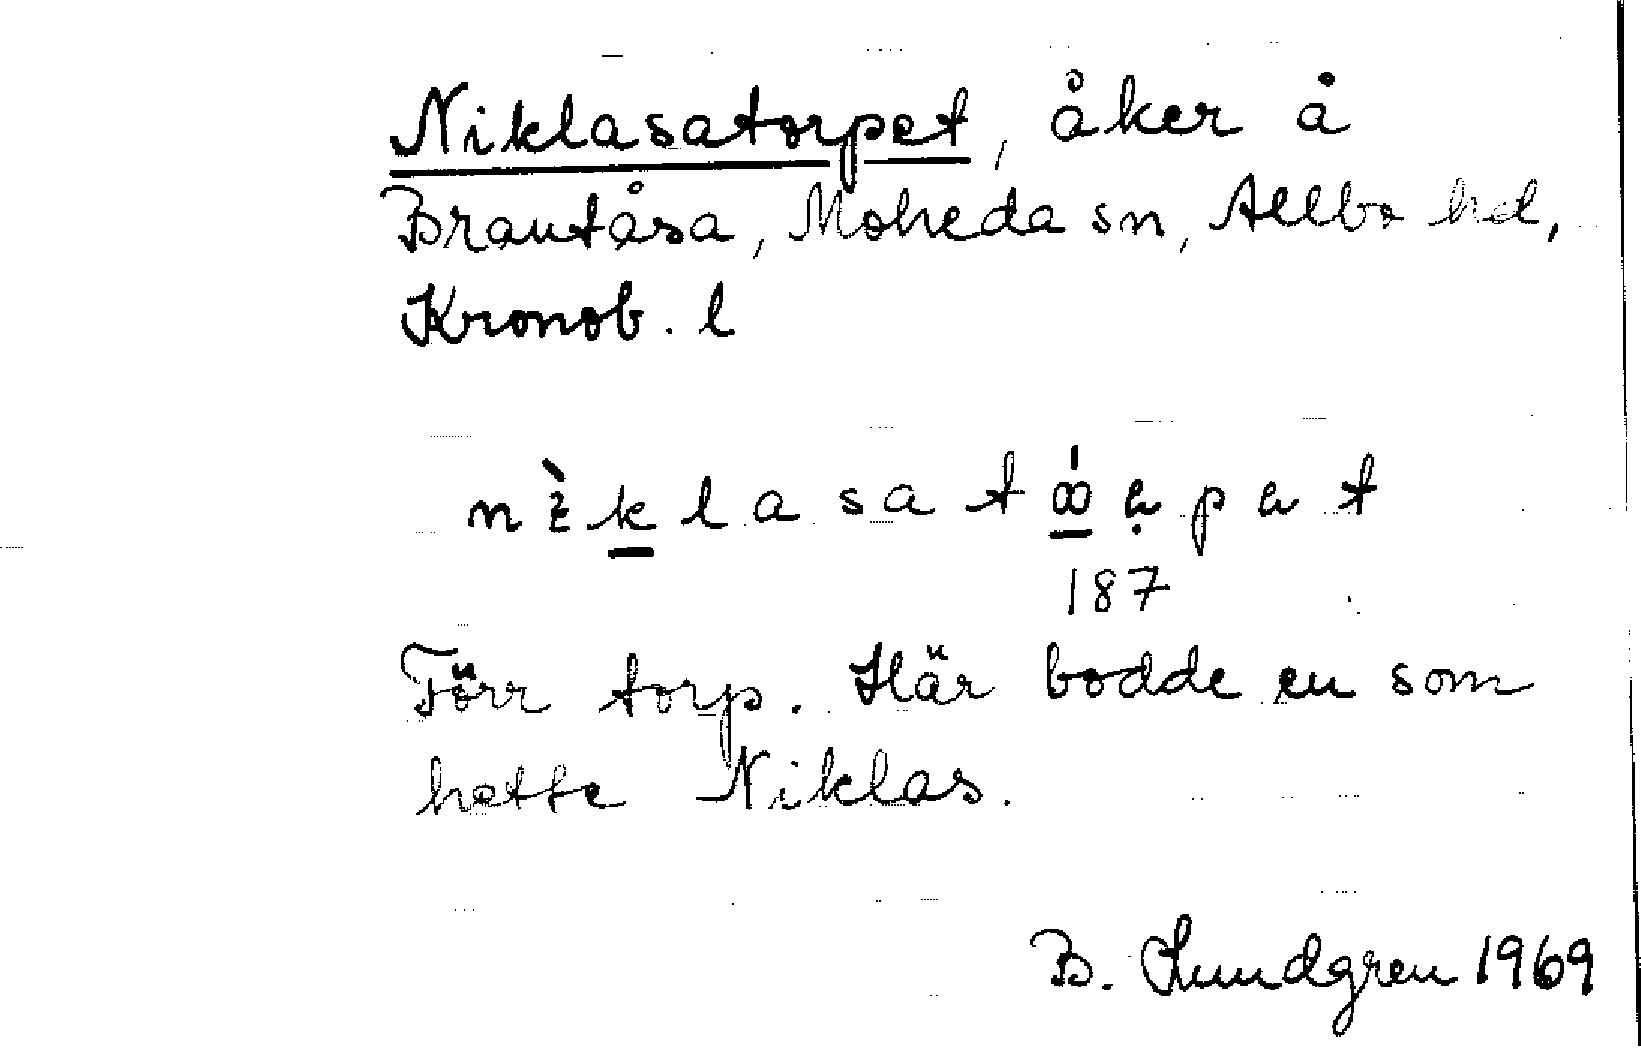 Niklasatorpet, åker å
Brantåsa, Moheda sn, Allbo hd,
Kronob. l
187
Förr torp. Här bodde en som
hette Niklas.
B. Lundgren 1969